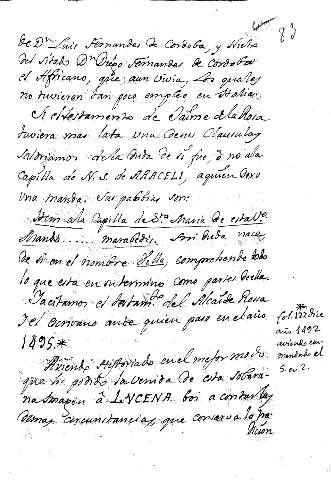 83
de Dn. Luis Fernandez de Cordoba, y Nieto
del citado Dn. Diego Fernandez de Cordoba
el Africano, que aun vivia, Los quales
no tuvieron tan poco empleo en Italia.
Si el testamento de Jaime de la Rosa
tuviera mas lata una Clausula
saldriamos de la duda de si fue, ò no a la
Capilla de N. S. de ARACELI, a quien dexo
una manda. Sus palabras son:
Item a la Capilla de Sta. Maria de esta Va.
Mando ...... maravedis. Sin duda nace
de si en el nombre Villa, comprehende todo
lo que esta en su termino como partes de ella.
Tacitamos el testamto. del Alcaide Rosa
y el escribano ante quien paso en el año
1495*
Aviendo Historiado en el mejor modo
que he podido la venida de esta Sobera-
na Imagen à LUCENA. boi a contar las
demas circunstancias, que conserva la tra-
dicion
*
fol. 177 dice
año 1492
aviendo en-
mendado el
5. en 2.